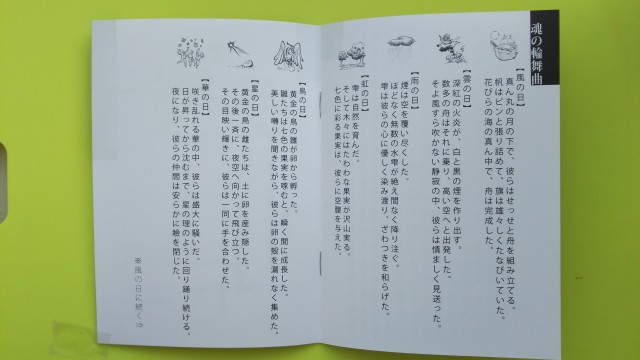 魂の輪舞曲
【風の日】
真ん丸の月の下で、彼らはせっせと舟を組み立てる。
帆はピンと張り詰めて、旗は雄々しくたなびいていた。
花びらの海の真ん中で、舟は完成した。
【雲の日】
深紅の火炎が、白と黒の煙を作り出す。
数多の舟はそれに乗り、高い空へと出発した。
そよ風すら吹かない静寂の中、彼らは慎ましく見送った。
【雨の日】
煙は空を覆い尽くした。
ほどなく無数の水雫が絶え間なく降り注ぐ。
雫は彼らの心に優しく染み渡り、ざわつきを和らげた。
【虹の日】
雫は自然を育んだ。
そして木々にはたわわな果実が沢山実る。
七色に彩る果実は、彼らに空腹を与えた。
【鳥の日】
黄金の鳥の雛が卵から孵った。
雛たちは七色の果実を啄むと、瞬く間に成長した。
美しい囀りを聞きながら、彼らは卵の殻を漏れなく集めた。
【星の日】
黄金の鳥の雌たちは、土に卵を産み隠した。
その後一斉に、夜空へ向かって飛び立つ。
その目映い輝きに、彼らは一同に手を合わせた。
【華の日】
咲き乱れる華の中、彼らは盛大に騒いだ。
日が昇ってから沈むまで、星の理のように回り踊り続ける。
夜になり、彼らの仲間は安らかに瞼を閉じた。
※風の日に続く⇒